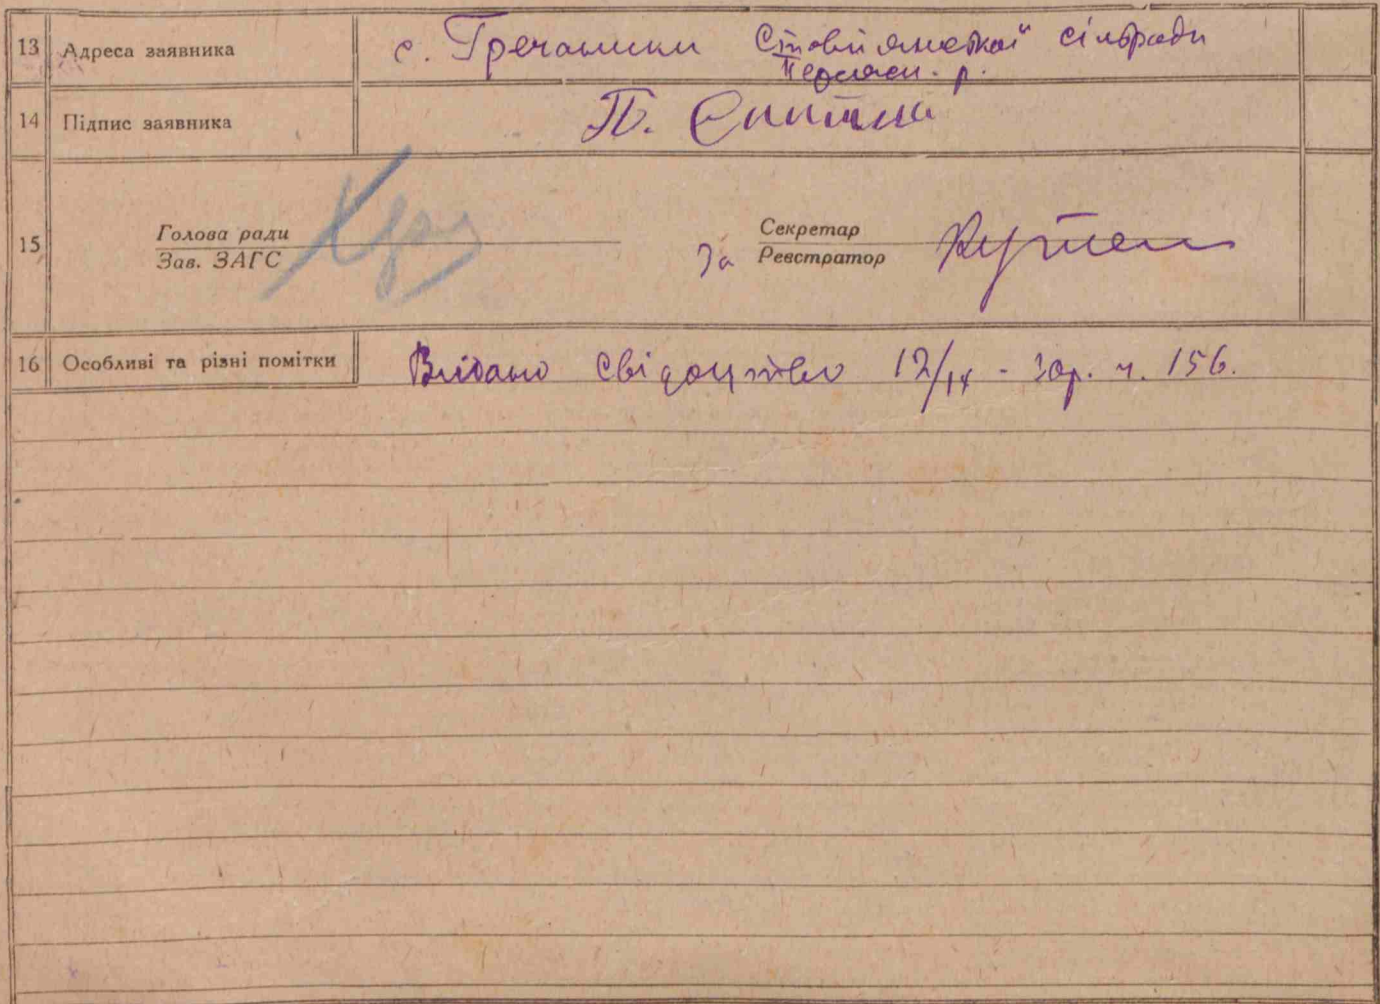 13 Адреса заявника с. Гречаники сільради
р.
14 Підпис заявника П.
15 Голова ради
Зав. ЗАГС
За Секретар
Реєстратор
16 Особливі та різні помітки Видано свідоцтво 12/IX - зар. ч. 156.